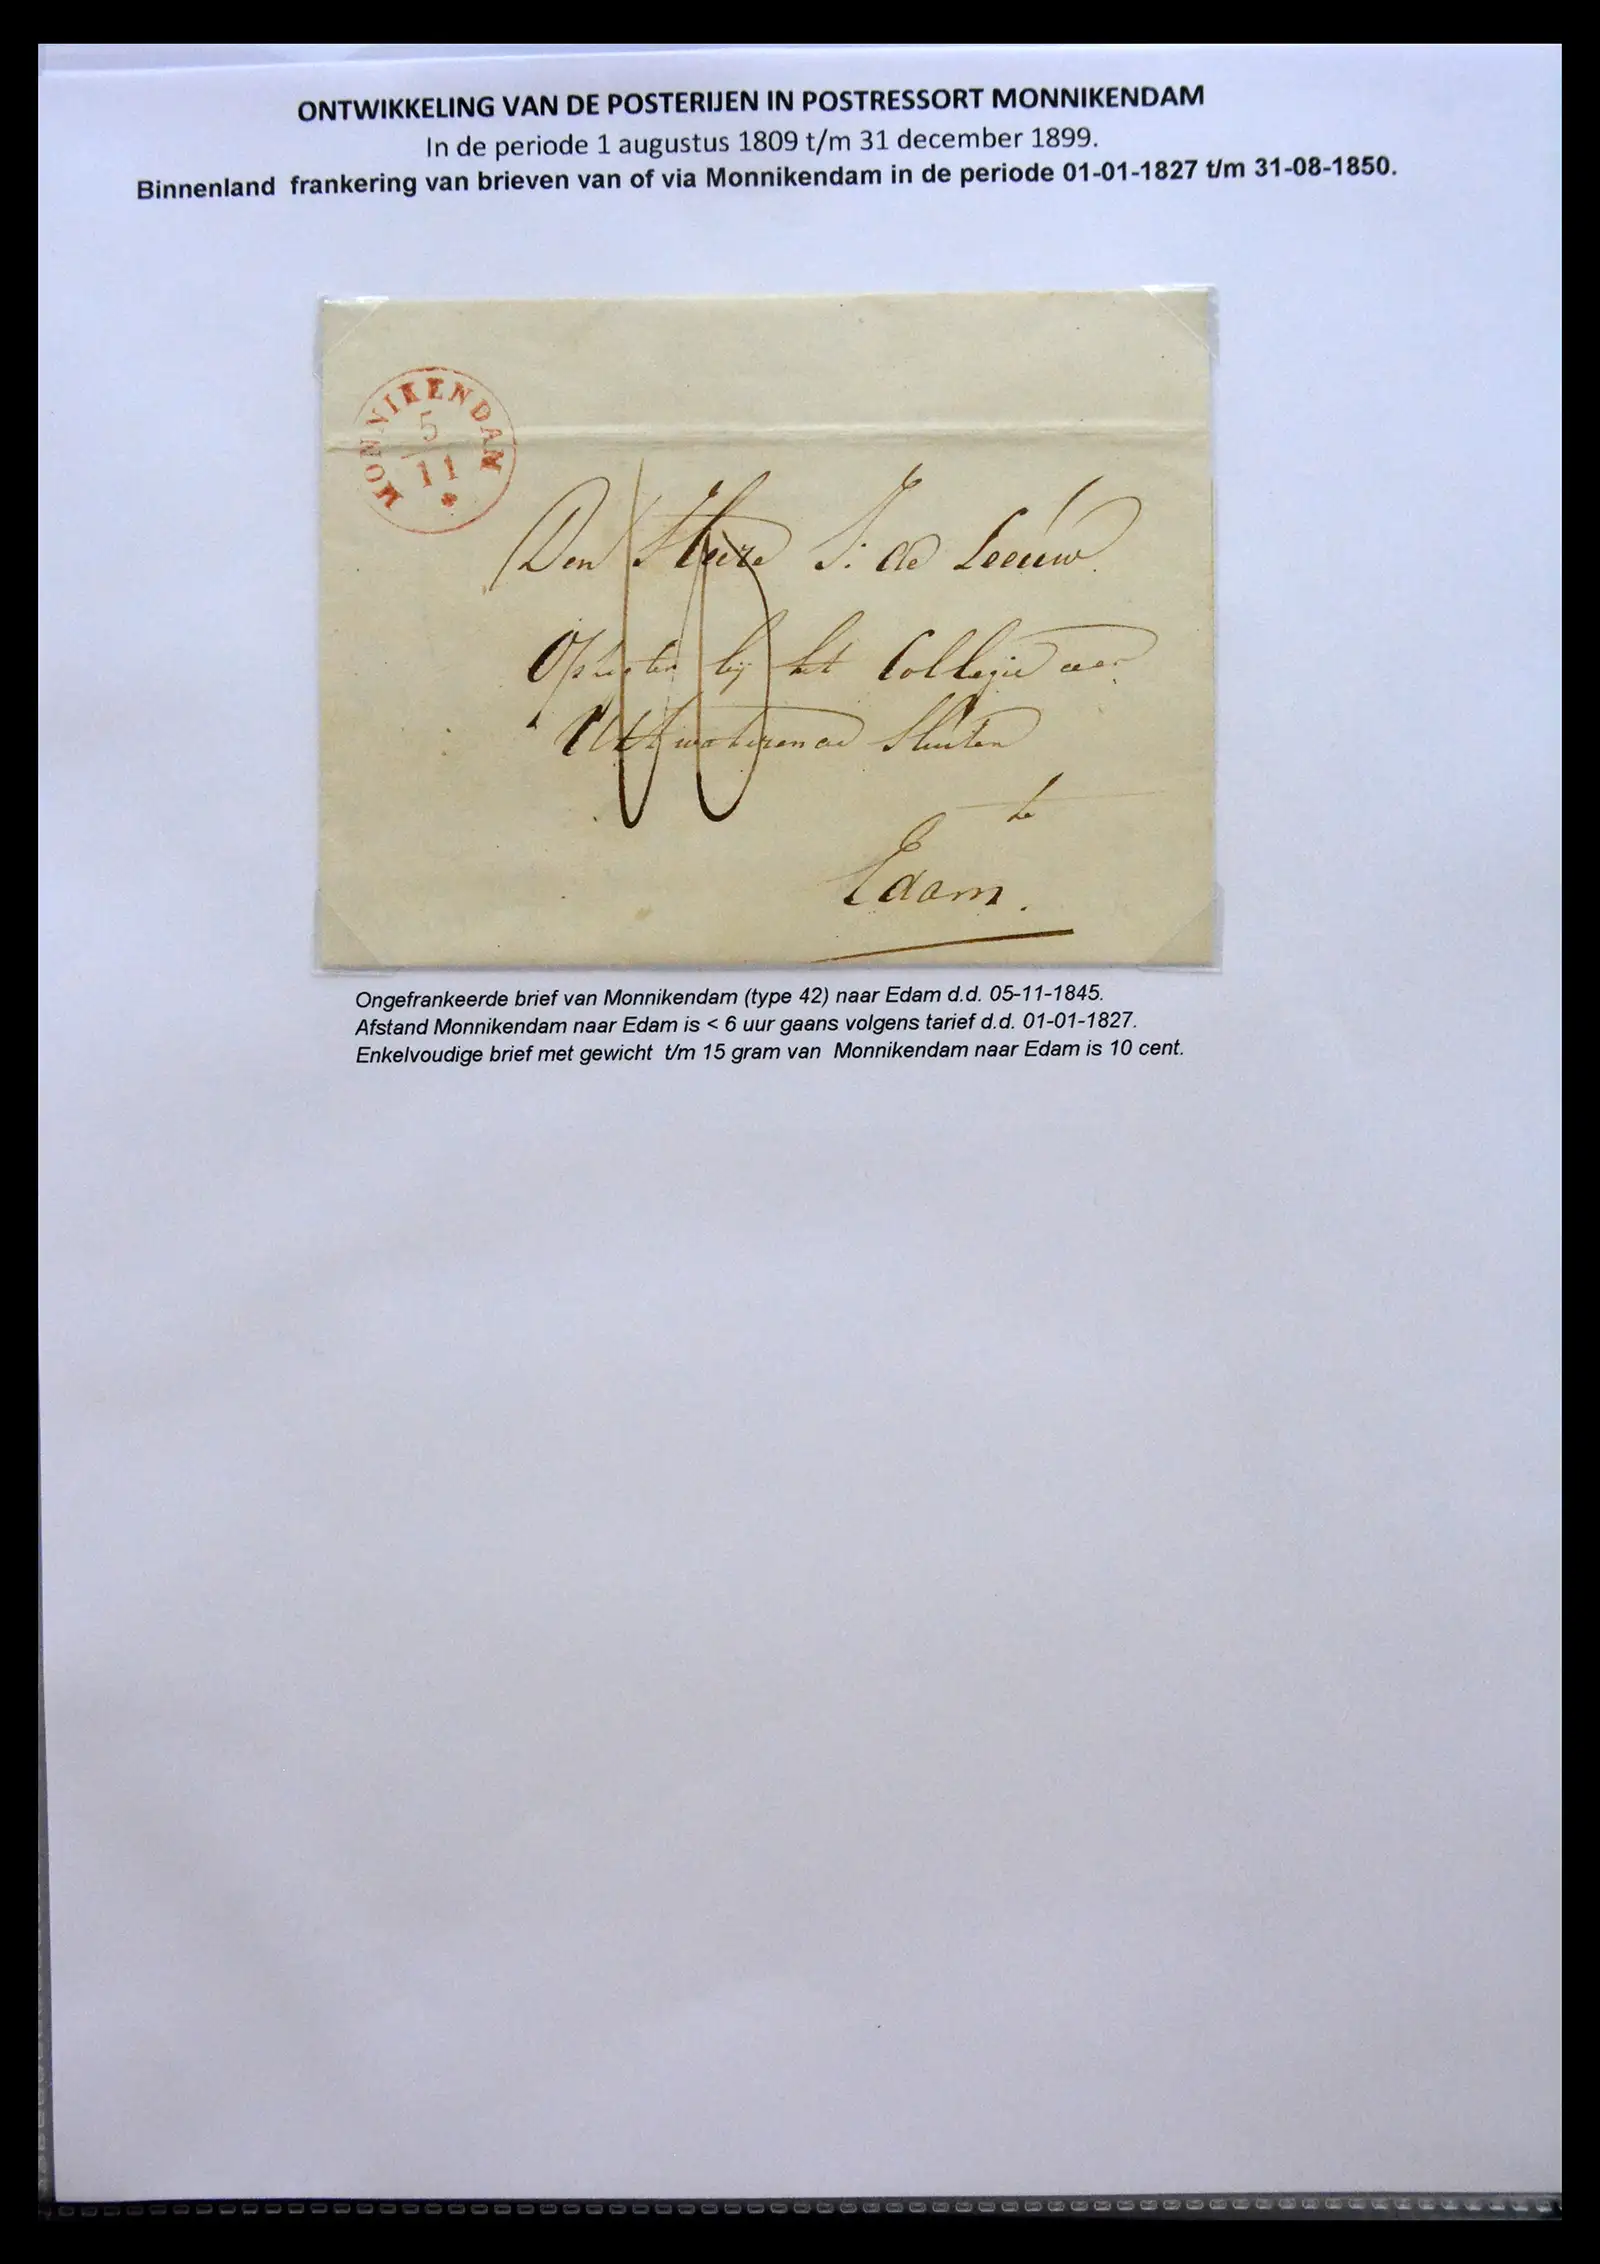 ONTWIKKELING VAN DE POSTERIJEN IN POSTRESSORT MONNIKENDAM
In de periode 1 augustus 1809 t/m 31 december 1899.
Binnenland frankering van brieven van of via Monnikendam in de periode 01-01-1827 t/m 31-08-1850.
MONNIKENDAM
5
11
Den Heere J: de Leeuw
bij het Collegie van
Uitwaterende Sluizen
te
Edam.
10
Ongefrankeerde brief van Monnikendam (type 42) naar Edam d.d. 05-11-1845.
Afstand Monnikendam naar Edam is < 6 uur gaans volgens tarief d.d. 01-01-1827.
Enkelvoudige brief met gewicht t/m 15 gram van Monnikendam naar Edam is 10 cent.